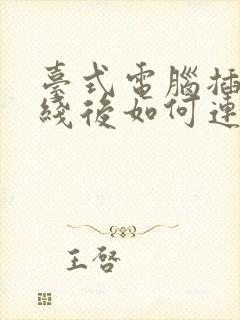 臺式電腦插
綫後如何連
王啓